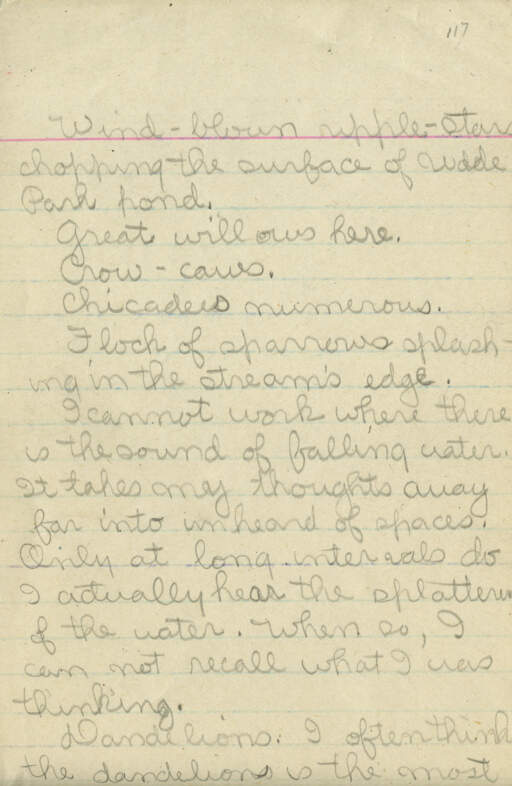 117
Wind-blown ripple-stars
chopping the surface of Wade
Park pond.
Great willows here.
Crow-caws.
Chicadees numerous.
Flock of sparrows splash-
ing in the stream's edge.
I cannot work where there
is the sound of falling water.
It takes my thoughts away
far into unheard of spaces.
Only at long intervals do
I actually hear the splattering
of the water. When so, I
can not recall what I was
thinking.
Dandelions. I often think
the dandelions is the most